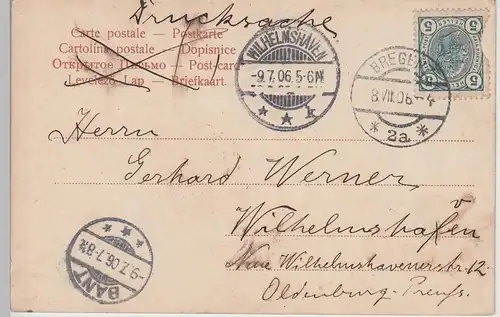 Drucksache
Carte postale — Postkarte
Cartolina postale — Dopisnice
Открытое Письмо — Post-card
Levelező Lap — Briefkaart.
WILHELMSHAVEN
-9.7.06 5-6N
* A k
BREGENZ
8.VII.06-4
* 2a *
5 5
5 5
Herrn
Gerhard Werner
Wilhelmshafen
v
Neue Wilhelmshavenerstr. 12
Oldenburg-Preuß.
BANT
-9.7.06.7-8N
* * *